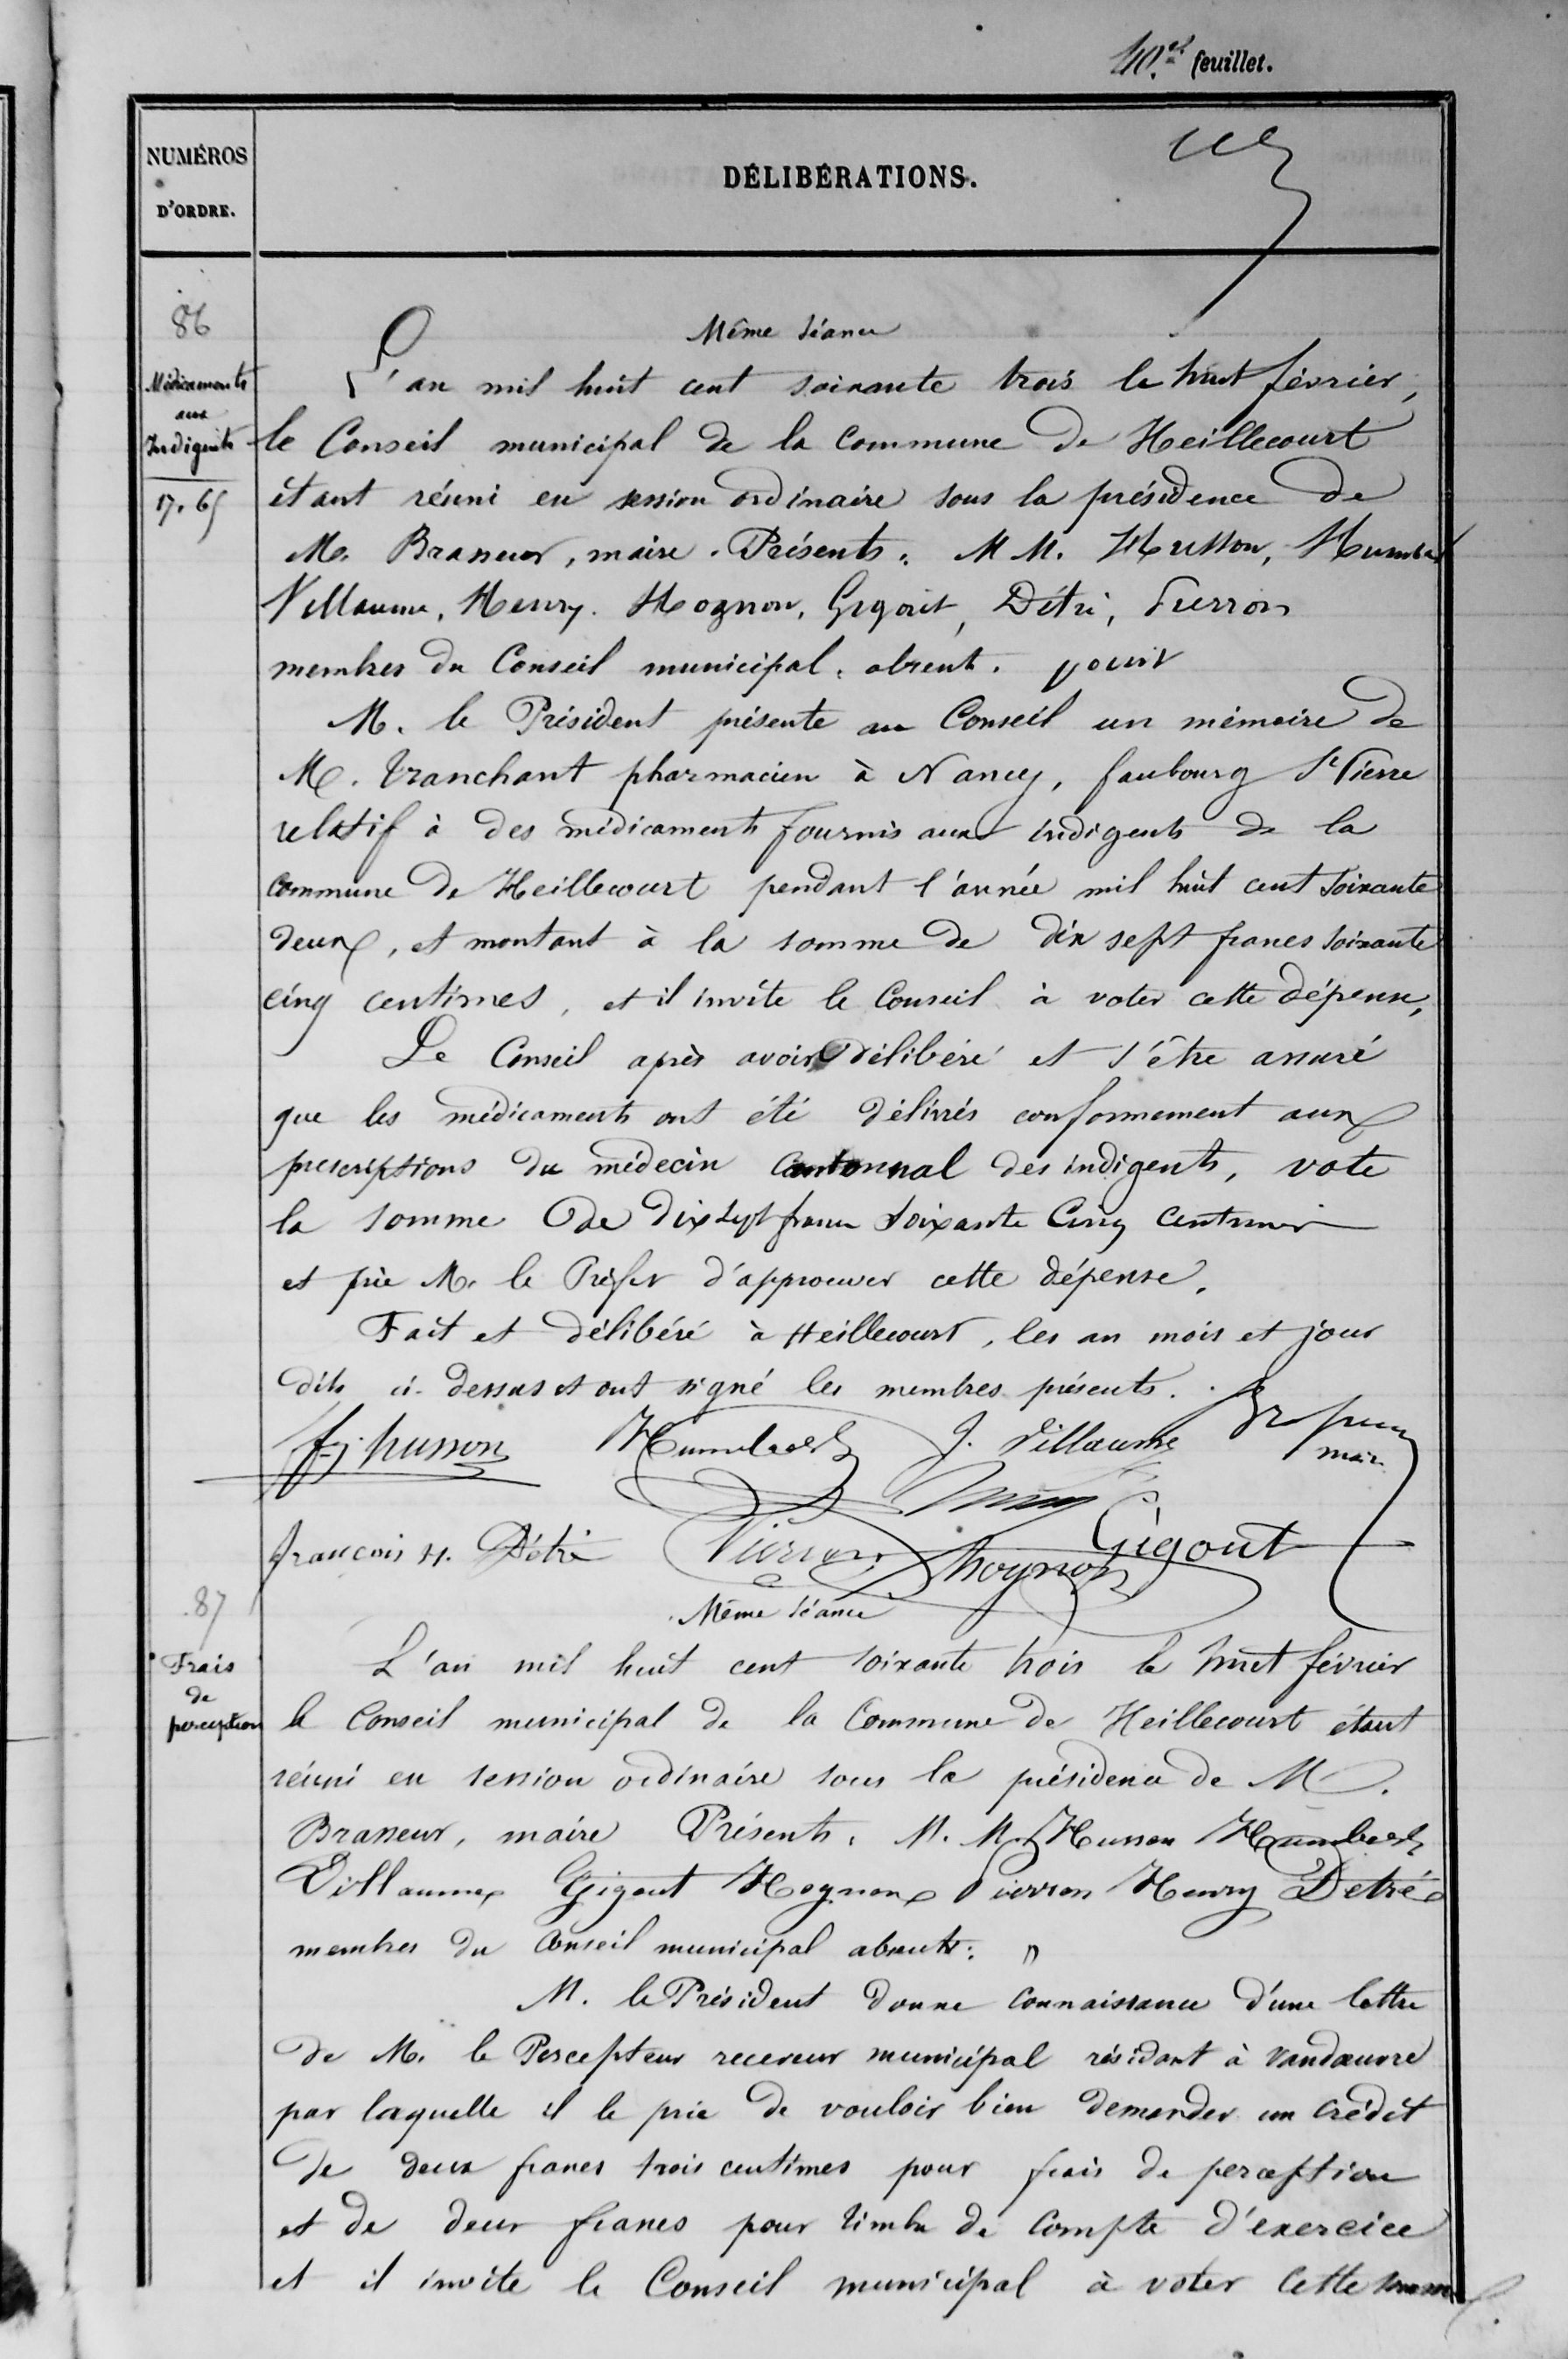 40.et feuillet.
NUMÉROS
D'ORDRE.
DÉLIBÉRATIONS.
86
Médicaments
aux
Indigents
17.65
Même séance
L'an mil huit cent soixante trois le huit février,
le Conseil municipal de la commune de Heillecourt
étant réuni en session ordinaire sous la présidence de
M. Brasseur, maire. Présents: MM. Husson, Humbert
Villaume, Henry. Hognon, Gigout, Détré, Pierron
membres du Conseil municipal. absent.
M. le Président présente au Conseil un mémoire de
M. Tranchant pharmacien à Nancy, faubourg St Pierre
relatif à des médicaments fournis aux indigents de la
commune de Heillecourt pendant l'année mil huit cent soixante
deux, et montant à la somme de dix sept francs soixante
cinq centimes, et il invite le Conseil à voter cette dépense,
Le Conseil après avoir délibéré et s'être assuré
que les médicaments ont été délivrés conformement aux
prescriptions du médecin cantonnal des indigents, vote
la somme de dix sept francs soixante cinq centimes
et prie M. le Préfet d'approuver cette dépense.
Fait et délibéré à Heillecourt, les an mois et jour
dits ci-dessus et ont signé les membres présents.
fj. husson Humbert J. Villaume
maire
françois H. Détré Pierron hognon Gigout
87
Frais
de
perception
Même séance
L'an mil huit cent soixante trois le huit février
le Conseil municipal de la Commune de Heillecourt étant
réuni en session ordinaire sous la présidence de M.
Brasseur, maire Présents. M.M. Husson Humbert
Villaume Gigout Hognon Pierron Henry Detré
membres du Conseil municipal absents: "
M. le Président donne connaissance d'une lettre
de M. le Percepteur receveur municipal résidant à Vandœuvre
par laquelle il le prie de vouloir bien demander un crédit
de deux francs trois centimes pour frais de perception
et de deux francs pour timbre de compte d'exercice
et il invite le Conseil municipal à voter cette somme